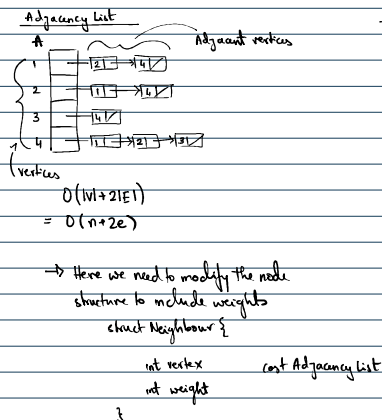 Adjacency List
A
Adjacent vertices
1 2 4
2 1 4
3 4
4 1 2 3
vertices
O(|v|+2|E|)
= O(n+2e)
→ Here we need to modify the node
structure to include weights
struct Neighbour {
int vertex cost Adjacency List
int weight
}